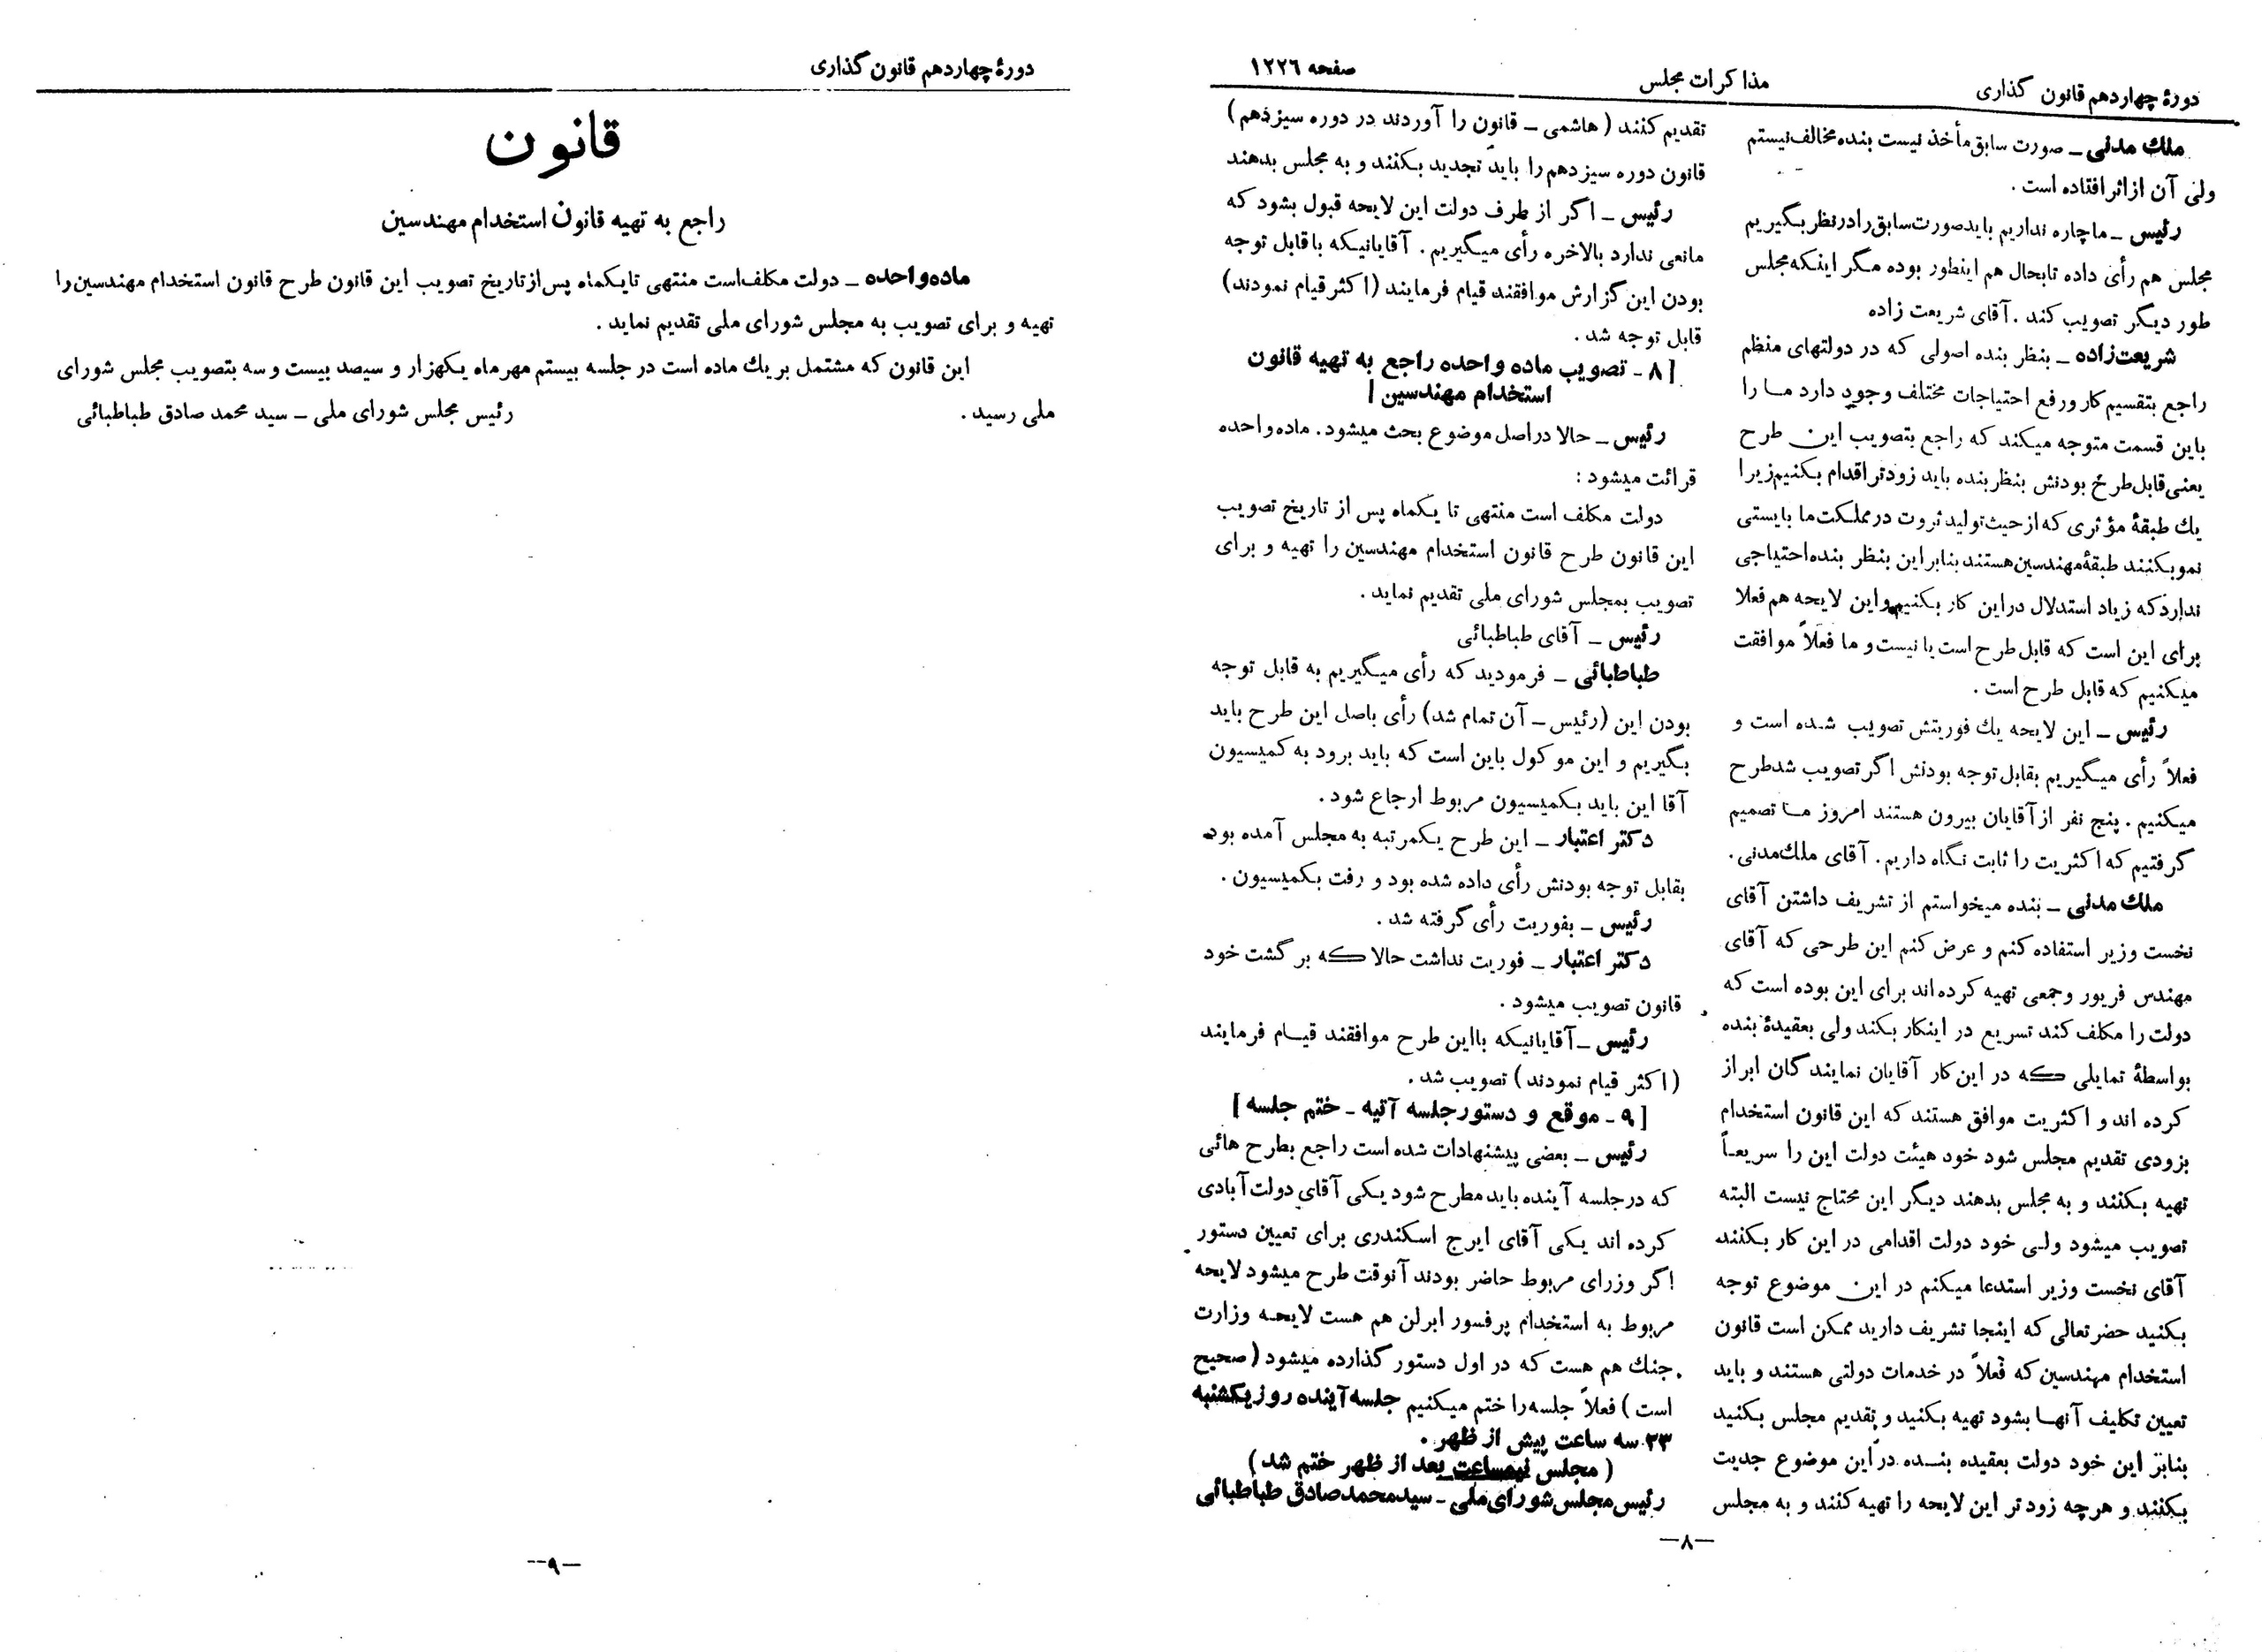 دورهٔ چهاردهم قانون گذاری
مذاکرات مجلس
صفحه ۱۲۲۶
ملك مدنی ــ صورت سابق مأخذ نیست بنده مخالف نیستم
ولی آن از اثر افتاده است .
رئیس ــ ما چاره نداریم باید صورت سابق را در نظر بگیریم
مجلس هم رأی داده تا بحال هم اینطور بوده مگر اینکه مجلس
طور دیگر تصویب کند . آقای شریعت زاده
شریعت‌زاده ــ بنظر بنده اصولی که در دولتهای منظم
راجع بتقسیم کار و رفع احتیاجات مختلف وجود دارد ما را
باین قسمت متوجه میکند که راجع بتصویب این طرح
یعنی قابل طرح بودنش بنظر بنده باید زودتر اقدام بکنیم زیرا
یك طبقهٔ مؤثری که از حیث تولید ثروت در مملکت ما بایستی
نمو بکنند طبقهٔ مهندسین هستند بنابراین بنظر بنده احتیاجی
ندارد که زیاد استدلال در این کار بکنیم و این لایحه هم فعلا
برای این است که قابل طرح است یا نیست و ما فعلاً موافقت
میکنیم که قابل طرح است .
رئیس ــ این لایحه یك فوریتش تصویب شده است و
فعلاً رأی میگیریم بقابل توجه بودنش اگر تصویب شد طرح
میکنیم . پنج نفر از آقایان بیرون هستند امروز ما تصمیم
گرفتیم که اکثریت را ثابت نگاه داریم . آقای ملك مدنی .
ملك مدنی ــ بنده میخواستم از تشریف داشتن آقای
نخست وزیر استفاده کنم و عرض کنم این طرحی که آقای
مهندس فریور و جمعی تهیه کرده اند برای این بوده است که
دولت را مکلف کند تسریع در اینکار بکند ولی بعقیدهٔ بنده
بواسطهٔ تمایلی که در این کار آقایان نمایندگان ابراز
کرده اند و اکثریت موافق هستند که این قانون استخدام
بزودی تقدیم مجلس شود خود هیئت دولت این را سریعاً
تهیه بکنند و به مجلس بدهند دیگر این محتاج نیست البته
تصویب میشود ولی خود دولت اقدامی در این کار بکنند
آقای نخست وزیر استدعا میکنم در این موضوع توجه
بکنید حضرتعالی که اینجا تشریف دارید ممکن است قانون
استخدام مهندسین که فعلاً در خدمات دولتی هستند و باید
تعیین تکلیف آنها بشود تهیه بکنید و تقدیم مجلس بکنید
بنابر این خود دولت بعقیده بنده در این موضوع جدیت
بکنند و هرچه زودتر این لایحه را تهیه کنند و به مجلس
تقدیم کنند (هاشمی ــ قانون را آوردند در دوره سیزدهم)
قانون دوره سیزدهم را باید تجدید بکنند و به مجلس بدهند
رئیس ــ اگر از طرف دولت این لایحه قبول بشود که
مانعی ندارد بالاخره رأی میگیریم . آقایانیکه با قابل توجه
بودن این گزارش موافقند قیام فرمایند (اکثر قیام نمودند)
قابل توجه شد .
[ ۸ ـ تصویب ماده واحده راجع به تهیه قانون
استخدام مهندسین ]
رئیس ــ حالا در اصل موضوع بحث میشود . ماده واحده
قرائت میشود :
دولت مکلف است منتهی تا یکماه پس از تاریخ تصویب
این قانون طرح قانون استخدام مهندسین را تهیه و برای
تصویب بمجلس شورای ملی تقدیم نماید .
رئیس ــ آقای طباطبائی
طباطبائی ــ فرمودید که رأی میگیریم به قابل توجه
بودن این (رئیس ــ آن تمام شد) رأی باصل این طرح باید
بگیریم و این موکول باین است که باید برود به کمیسیون
آقا این باید بکمیسیون مربوط ارجاع شود .
دکتر اعتبار ــ این طرح یکمرتبه به مجلس آمده بود
بقابل توجه بودنش رأی داده شده بود و رفت بکمیسیون .
رئیس ــ بفوریت رأی گرفته شد .
دکتر اعتبار ــ فوریت نداشت حالا که برگشت خود
قانون تصویب میشود .
رئیس ــ آقایانیکه بااین طرح موافقند قیام فرمایند
(اکثر قیام نمودند) تصویب شد .
[ ۹ ـ موقع و دستور جلسه آتیه ـ ختم جلسه ]
رئیس ــ بعضی پیشنهادات شده است راجع بطرح هائی
که در جلسه آینده باید مطرح شود یکی آقای دولت آبادی
کرده اند یکی آقای ایرج اسکندری برای تعیین دستور
اگر وزرای مربوط حاضر بودند آنوقت طرح میشود لایحه
مربوط به استخدام پرفسور ابرلن هم هست لایحه وزارت
جنك هم هست که در اول دستور گذارده میشود (صحیح
است) فعلاً جلسه را ختم میکنیم جلسه آینده روز یکشنبه
۲۳ سه ساعت پیش از ظهر .
(مجلس نیمساعت بعد از ظهر ختم شد)
رئیس مجلس شورای ملی ـ سید محمد صادق طباطبائی
ــ۸ــ
دورهٔ چهاردهم قانون گذاری
قانون
راجع به تهیه قانون استخدام مهندسین
ماده واحده ــ دولت مکلف است منتهی تا یکماه پس از تاریخ تصویب این قانون طرح قانون استخدام مهندسین را
تهیه و برای تصویب به مجلس شورای ملی تقدیم نماید .
این قانون که مشتمل بر یك ماده است در جلسه بیستم مهر ماه یکهزار و سیصد بیست و سه بتصویب مجلس شورای
ملی رسید . رئیس مجلس شورای ملی ــ سید محمد صادق طباطبائی
ــ۹ــ